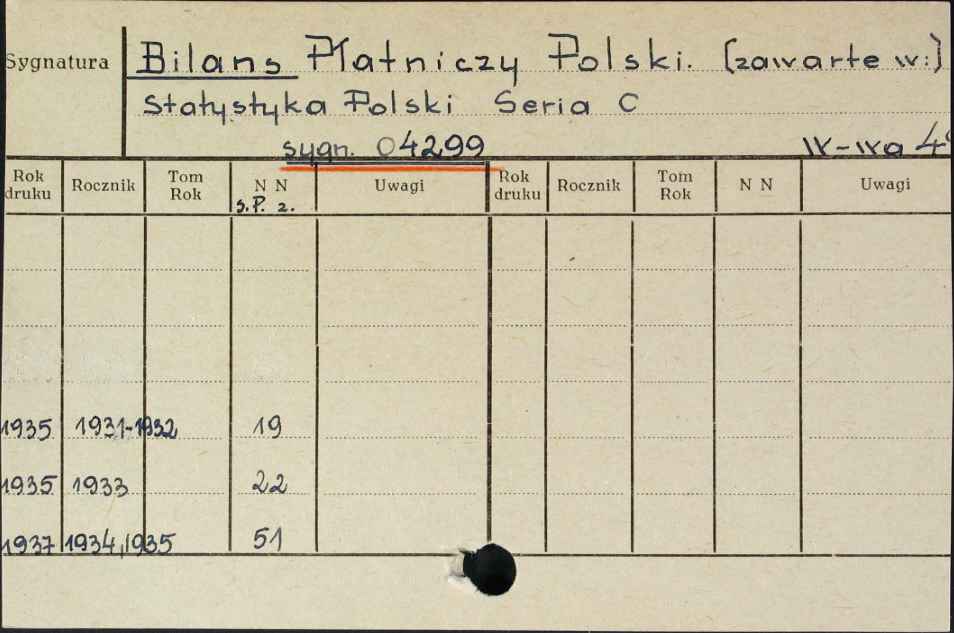 Sygnatura Bilans Płatniczy Polski. [zawarte w:]
Statystyka Polski Seria C
sygn. 04299
Rok druku Rocznik Tom Rok N N s.P. z. Uwagi Rok druku Rocznik Tom Rok N N Uwagi
1935 1931-1932 19
1935 1933 22
1937 1934,1935 51